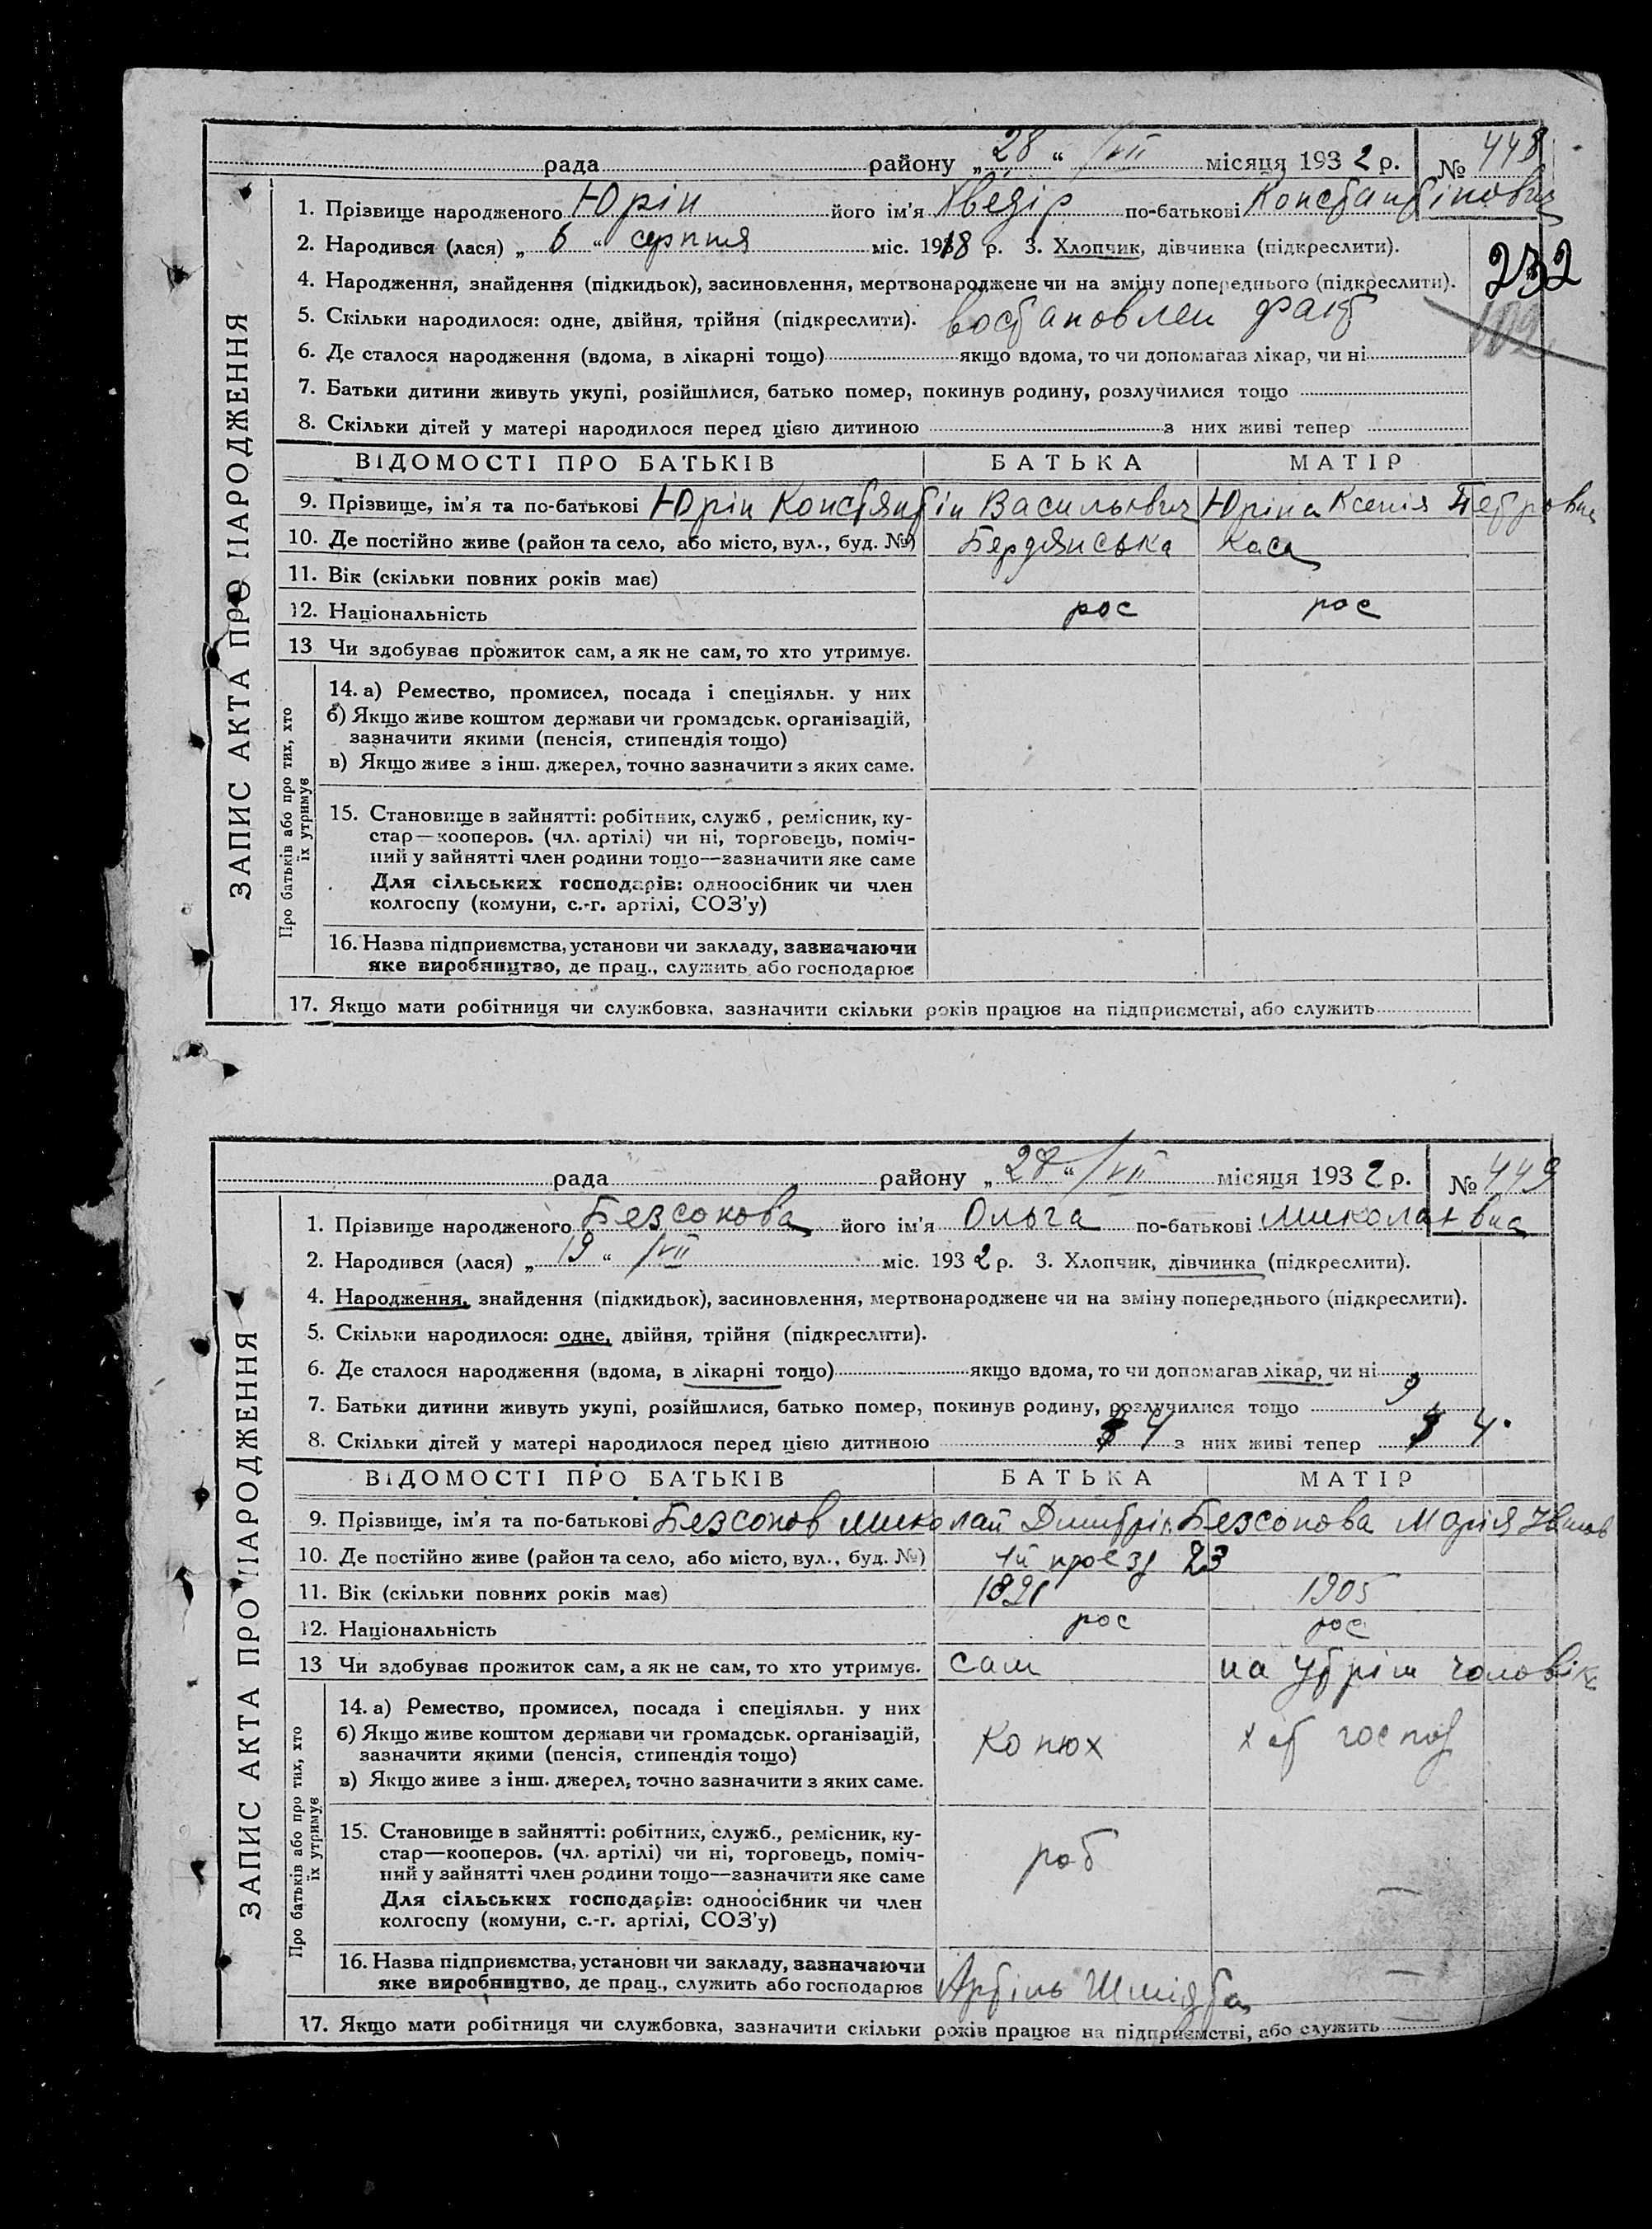 рада району „28“ /VII місяця 1932 р. № 448
ЗАПИС АКТА ПРО НАРОДЖЕННЯ
1. Прізвище народженого Юрін його ім'я Хведір по-батькові Константінович
2. Народився (лася) „6“ серпня міс. 1918 р. 3. Хлопчик, дівчинка (підкреслити).
232
4. Народження, знайдення (підкидьок), засиновлення, мертвонароджене чи на зміну попереднього (підкреслити).
5. Скільки народилося: одне, двійня, трійня (підкреслити). востановлен факт
102
6. Де сталося народження (вдома, в лікарні тощо) якщо вдома, то чи допомагав лікар, чи ні
7. Батьки дитини живуть укупі, розійшлися, батько помер, покинув родину, розлучилися тощо
8. Скільки дітей у матері народилося перед цією дитиною з них живі тепер
ВІДОМОСТІ ПРО БАТЬКІВ БАТЬКА МАТІР
9. Прізвище, ім'я та по-батькові Юрін Констянтін Васильович Юріна Ксенія Петровна
10. Де постійно живе (район та село, або місто, вул., буд. №) Бердянська Коса
11. Вік (скільки повних років має)
12. Національність рос рос
13 Чи здобуває прожиток сам, а як не сам, то хто утримує.
Про батьків або про тих, хто
їх утримує
14. а) Ремество, промисел, посада і спеціяльн. у них
б) Якщо живе коштом держави чи громадськ. організацій,
зазначити якими (пенсія, стипендія тощо)
в) Якщо живе з інш. джерел, точно зазначити з яких саме.
15. Становище в зайнятті: робітник, служб., ремісник, ку-
стар—кооперов. (чл. артілі) чи ні, торговець, поміч-
ний у зайнятті член родини тощо—зазначити яке саме
Для сільських господарів: одноосібник чи член
колгоспу (комуни, с.-г. артілі, СОЗ'у)
16. Назва підприємства, установи чи закладу, зазначаючи
яке виробництво, де прац., служить або господарює
17. Якщо мати робітниця чи службовка, зазначити скільки років працює на підприємстві, або служить
рада району „28“ /VII місяця 1932 р. № 449
ЗАПИС АКТА ПРО НАРОДЖЕННЯ
1. Прізвище народженого Безсонова його ім'я Ольга по-батькові Миколаївна
2. Народився (лася) „19“ /VII міс. 1932 р. 3. Хлопчик, дівчинка (підкреслити).
4. Народження, знайдення (підкидьок), засиновлення, мертвонароджене чи на зміну попереднього (підкреслити).
5. Скільки народилося: одне, двійня, трійня (підкреслити).
6. Де сталося народження (вдома, в лікарні тощо) якщо вдома, то чи допомагав лікар, чи ні
7. Батьки дитини живуть укупі, розійшлися, батько помер, покинув родину, розлучилися тощо
8. Скільки дітей у матері народилося перед цією дитиною 4 з них живі тепер 4
ВІДОМОСТІ ПРО БАТЬКІВ БАТЬКА МАТІР
9. Прізвище, ім'я та по-батькові Безсонов Миколай Дмитрів Безсонова Марія Іванов
10. Де постійно живе (район та село, або місто, вул., буд. №) 1й проезд 23
11. Вік (скільки повних років має) 1905
12. Національність рос рос
13 Чи здобуває прожиток сам, а як не сам, то хто утримує. сам на утрім чоловіка
Про батьків або про тих, хто
їх утримує
14. а) Ремество, промисел, посада і спеціяльн. у них
б) Якщо живе коштом держави чи громадськ. організацій,
зазначити якими (пенсія, стипендія тощо)
Конюх хат господ
в) Якщо живе з інш. джерел, точно зазначити з яких саме.
15. Становище в зайнятті: робітник, служб., ремісник, ку-
стар—кооперов. (чл. артілі) чи ні, торговець, поміч-
ний у зайнятті член родини тощо—зазначити яке саме
роб
Для сільських господарів: одноосібник чи член
колгоспу (комуни, с.-г. артілі, СОЗ'у)
16. Назва підприємства, установи чи закладу, зазначаючи
яке виробництво, де прац., служить або господарює Артіль Шмідта
17. Якщо мати робітниця чи службовка, зазначити скільки років працює на підприємстві, або служить